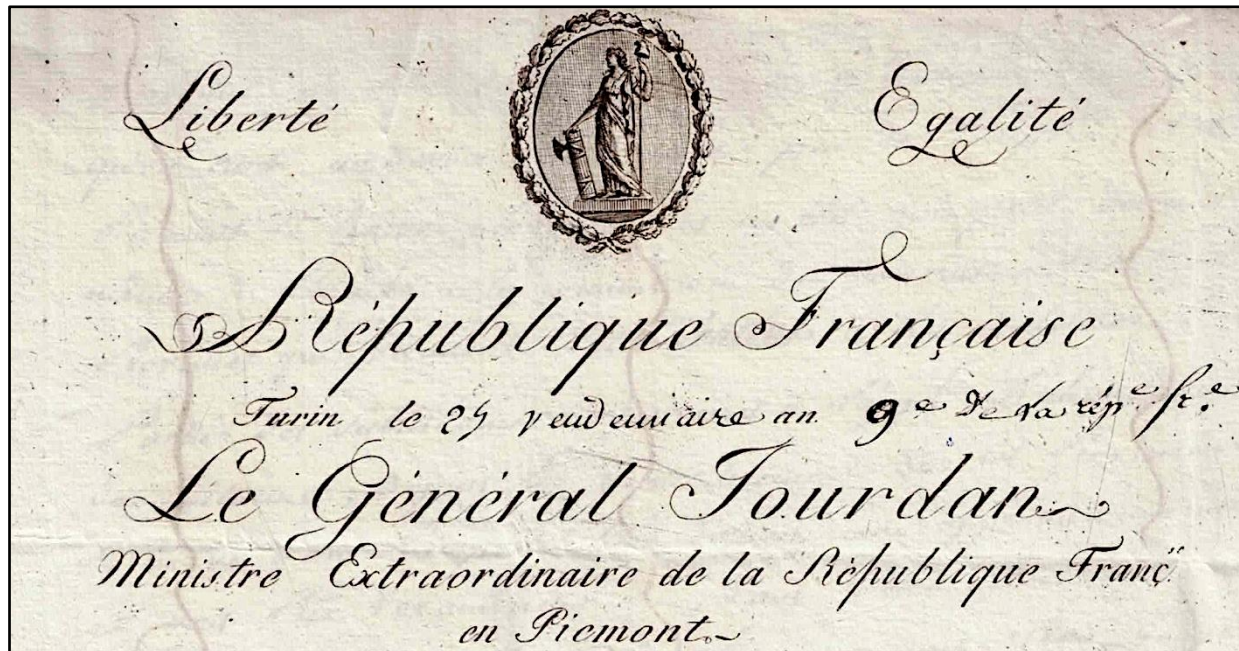 Liberté Egalité
République Française
Turin le 25 vendemiaire an 9e de la répe. fre.
Le Général Jourdan
Ministre Extraordinaire de la République Franç.
en Piemont.